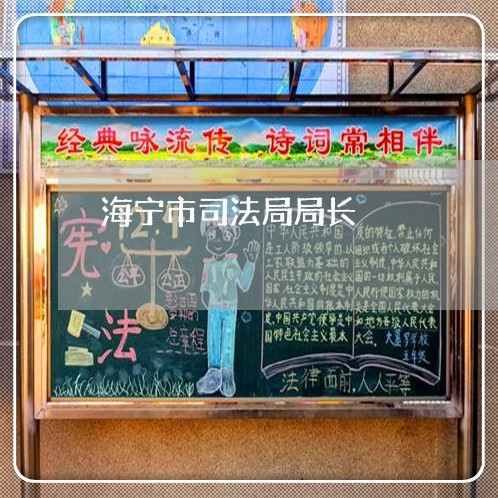 经典咏流传 诗词常相伴
海宁市司法局局长
12.4
宪
法
公平
公正
法律面前,人人平等
中华人民共和国
是工人阶级领导的,以
工农联盟为基础的
人民民主专政的社会主义
国家,社会主义制度是中
华人民共和国的根本制
度,中国共产党领导是中
国特色社会主义最本
质的特征,禁止任何
组织或者个人破坏社会
主义制度,中华人民共和
国的一切权利属于人民,
人民行使国家权力的机
关是全国人民代表大会
和地方各级人民代表
大会。
五年级